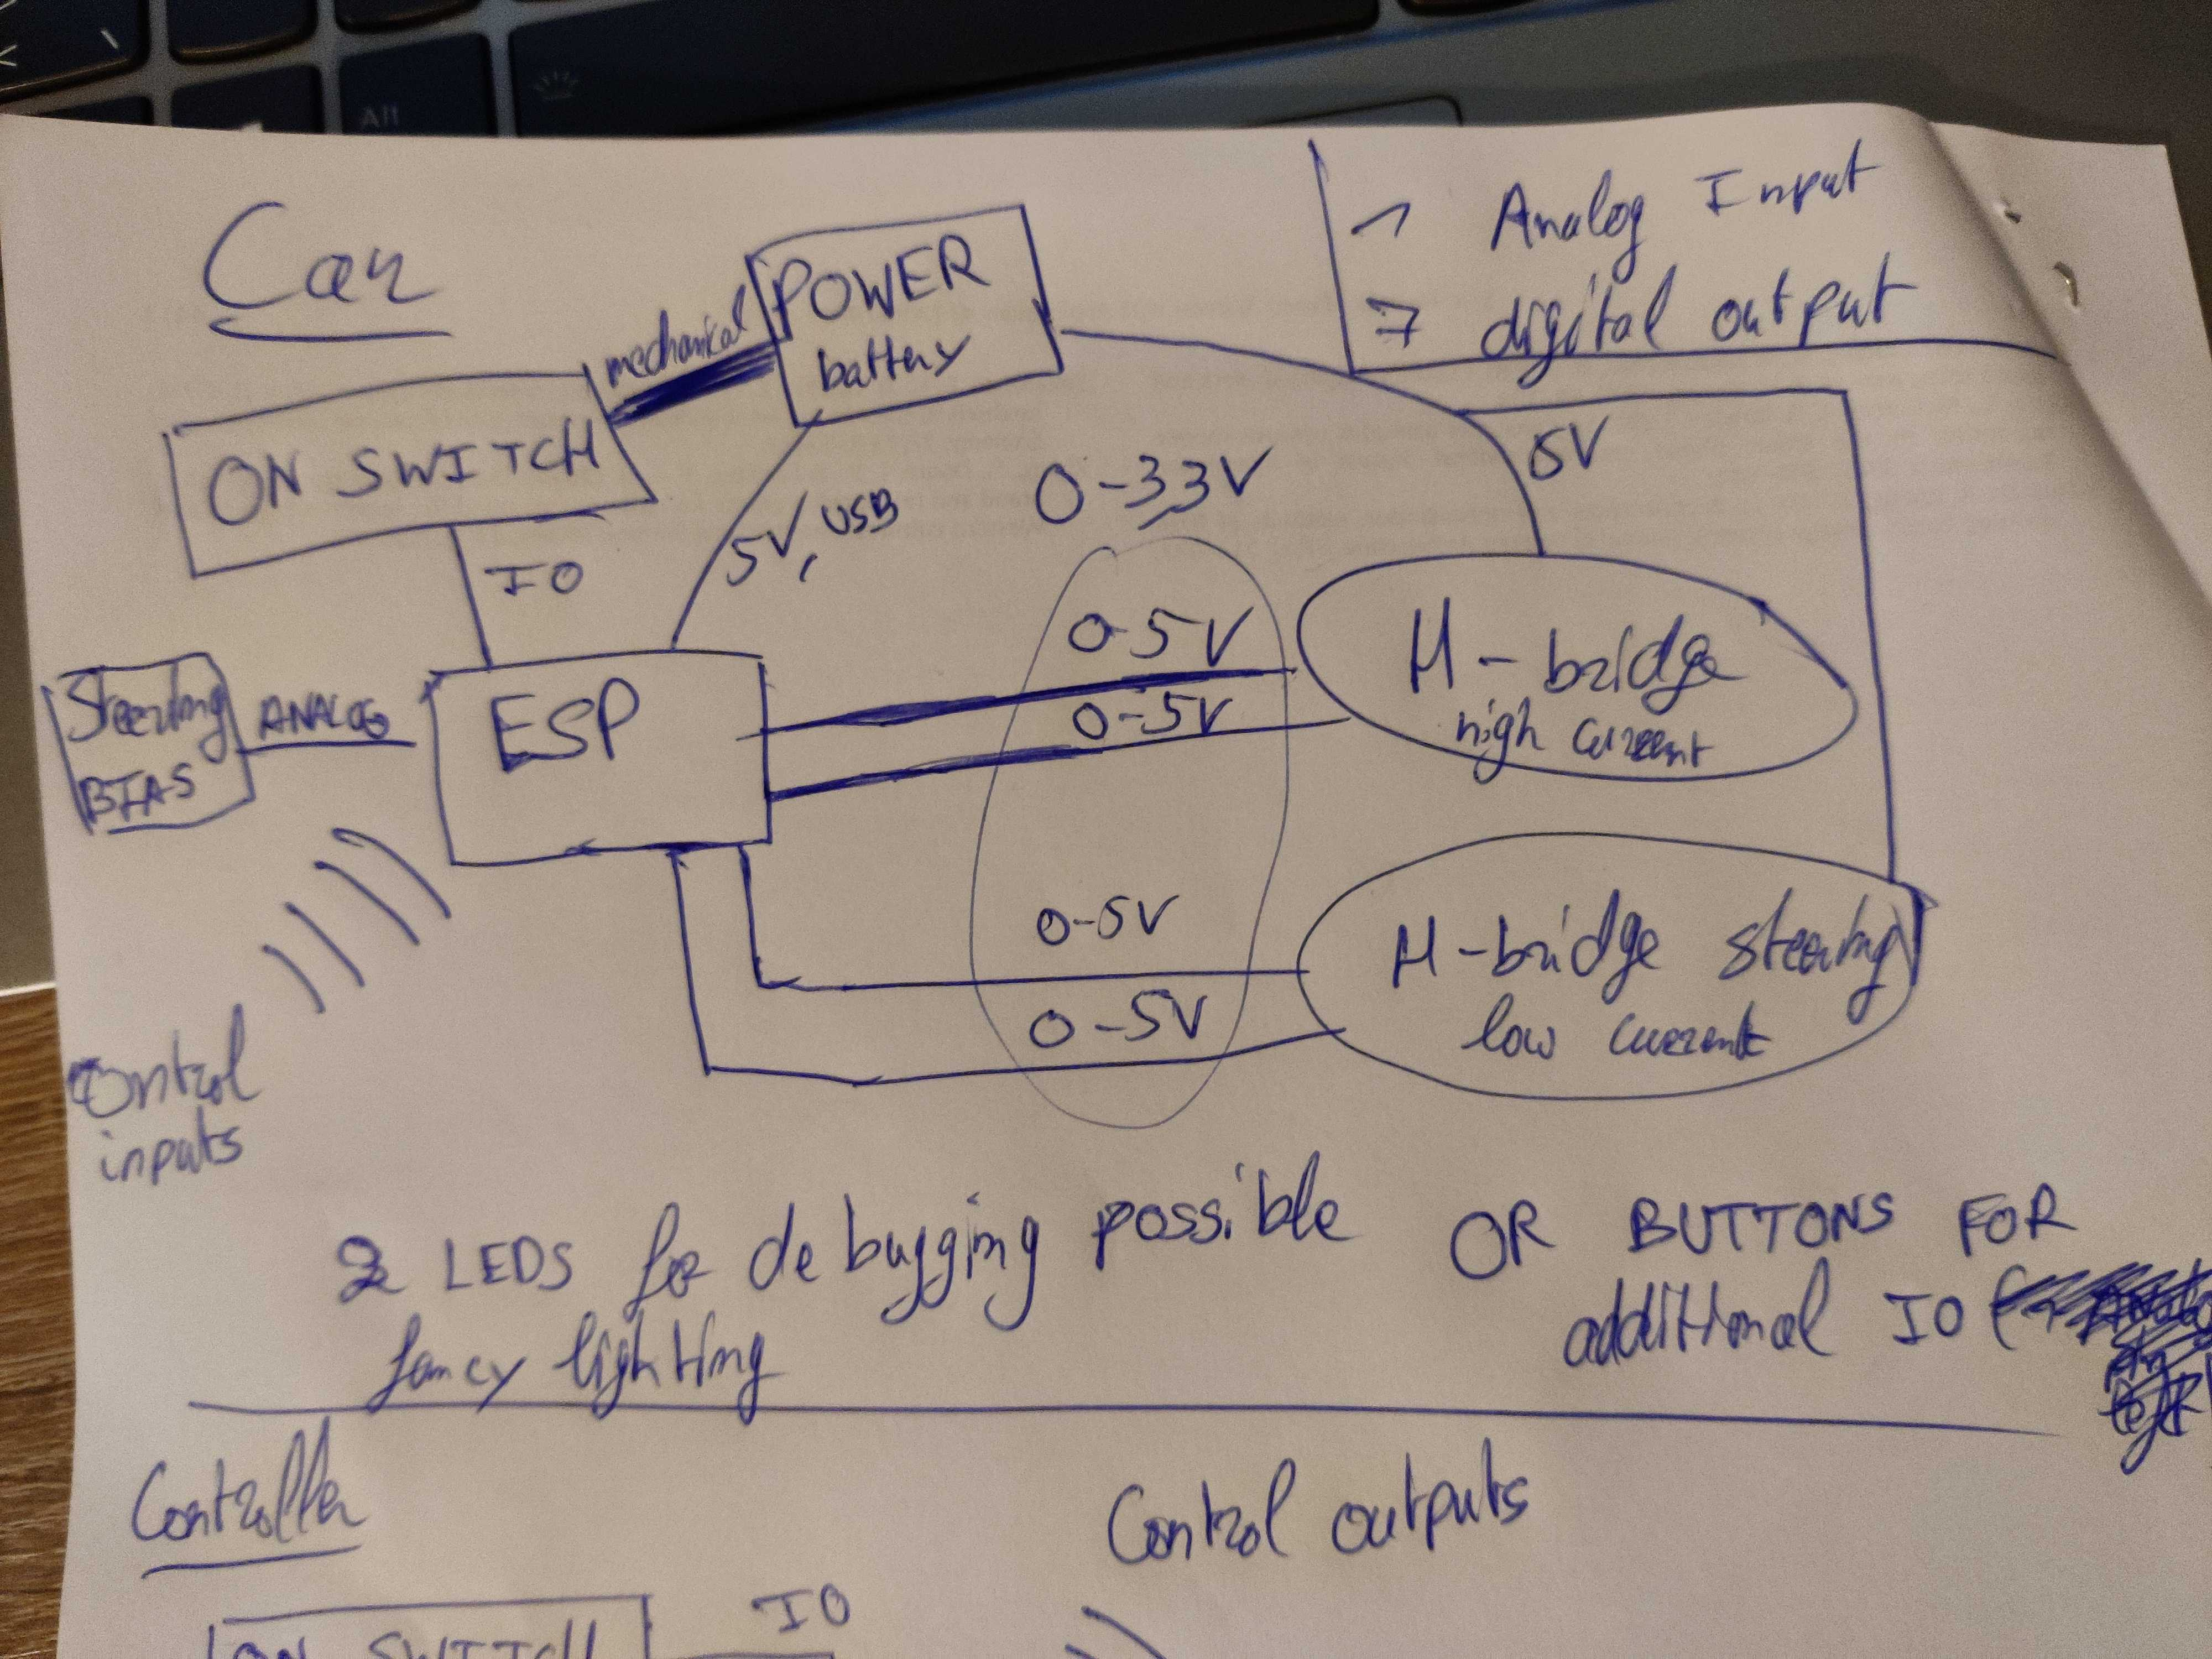 Alt
Car
1 Analog Input
7 digital output
POWER
battery
mechanical
ON SWITCH
IO
5V, USB
0-3,3V
5V
Steering
BIAS
ANALOG
ESP
0-5V
0-5V
H-bridge
high current
0-5V
0-5V
H-bridge steering
low current
Control
inputs
2 LEDS for debugging possible
fancy lighting
OR BUTTONS FOR
additional IO
Controller
Control outputs
ON SWITCH
IO